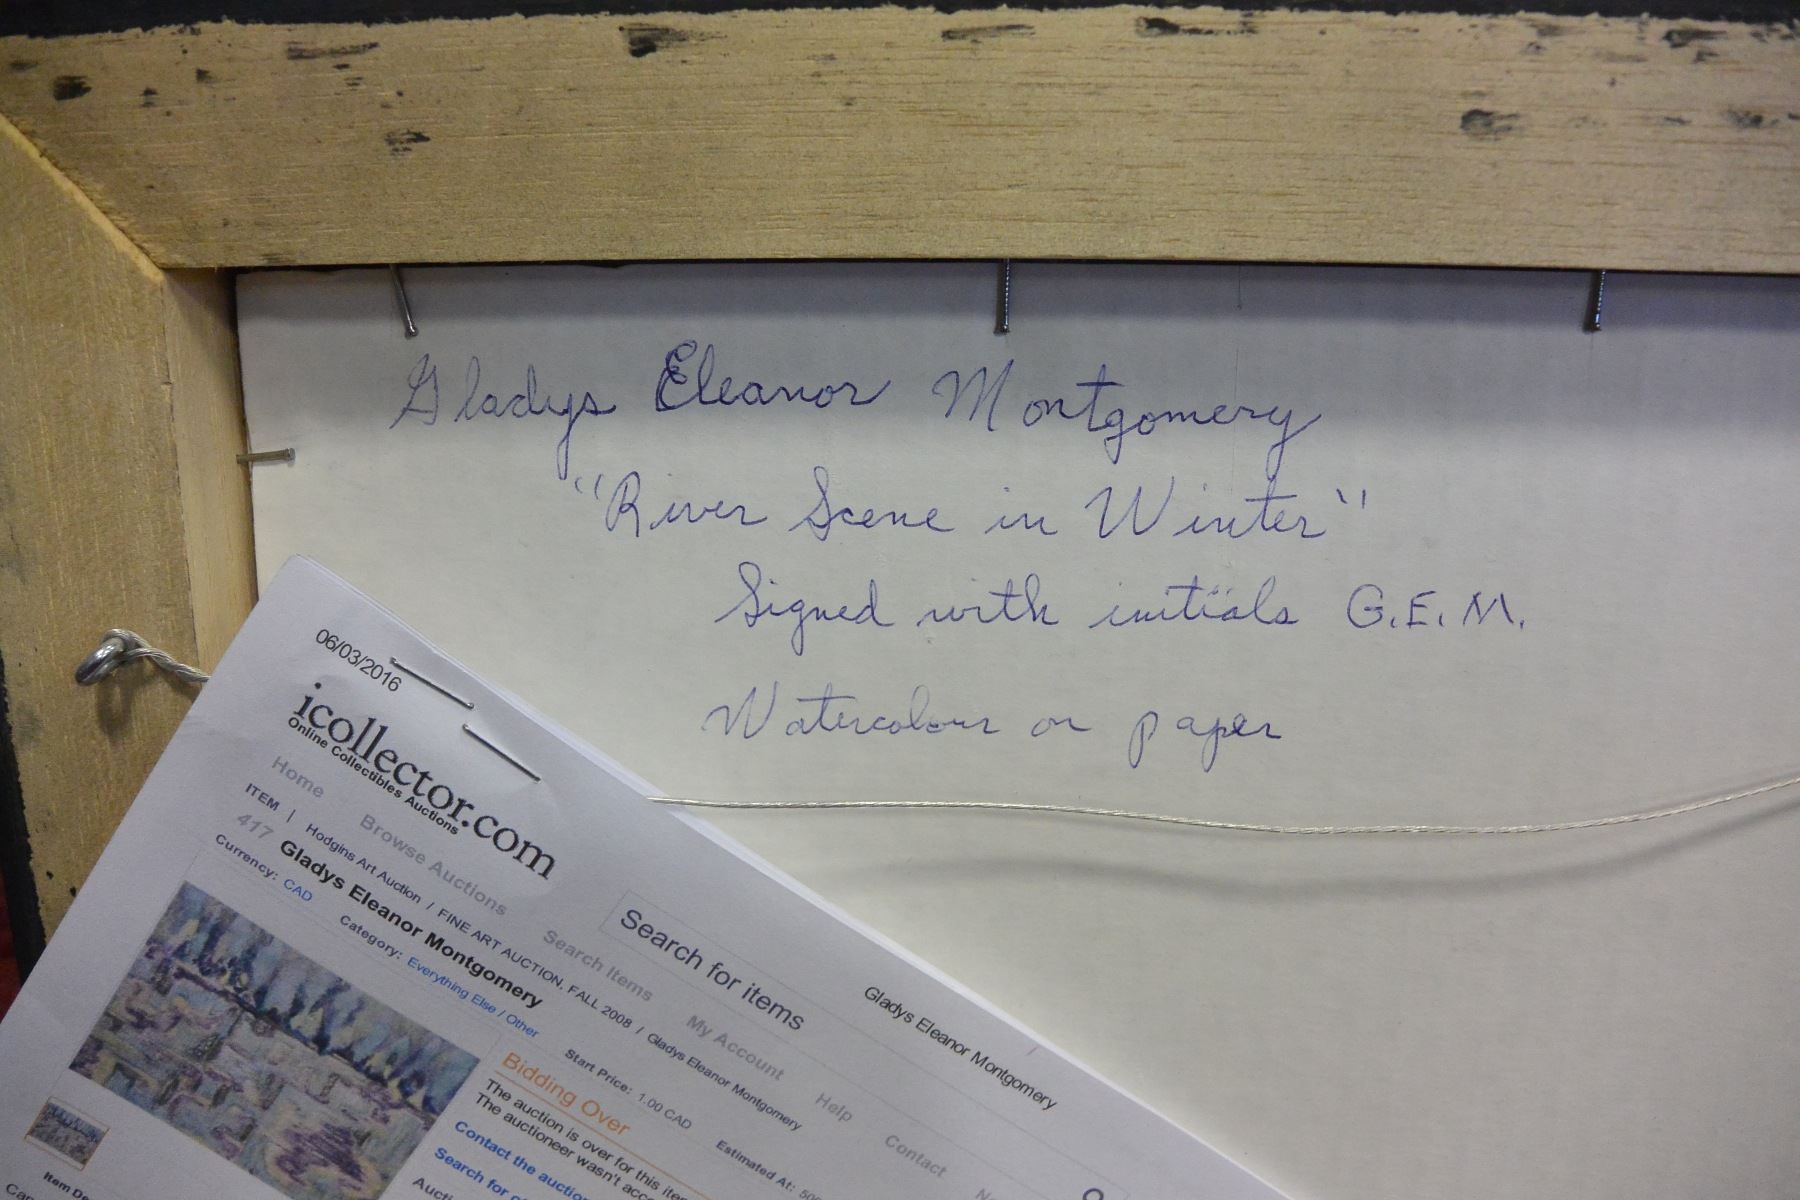 Gladys Eleanor Montgomery
"River Scene in Winter"
Signed with initials G.E.M.
Watercolour on paper
06/03/2016
Gladys Eleanor Montgomery
icollector.com
Online Collectibles Auctions
Search for items
Home Browse Auctions Search Items My Account Help Contact
ITEM | Hodgins Art Auction / FINE ART AUCTION, FALL 2008 / Gladys Eleanor Montgomery
417 Gladys Eleanor Montgomery
Currency: CAD Category: Everything Else / Other Start Price: 1.00 CAD Estimated At:
Bidding Over
The auction is over for this
The auctioneer wasn't
Contact the
Search for
Item